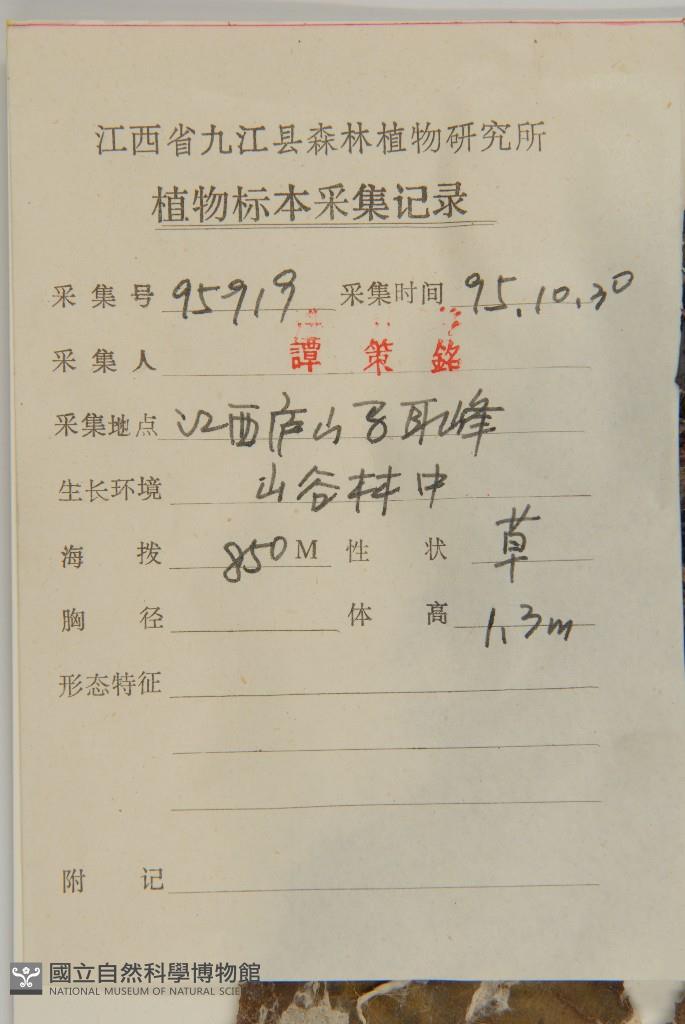 江西省九江县森林植物研究所
植物标本采集记录
采集号 95919 采集时间 95.10.30
采集人 譚策銘
采集地点 江西庐山 耳峰
生长环境 山谷林中
海拨 850M 性状 草
胸径 体高 1.3m
形态特征
附记
國立自然科學博物館
NATIONAL MUSEUM OF NATURAL